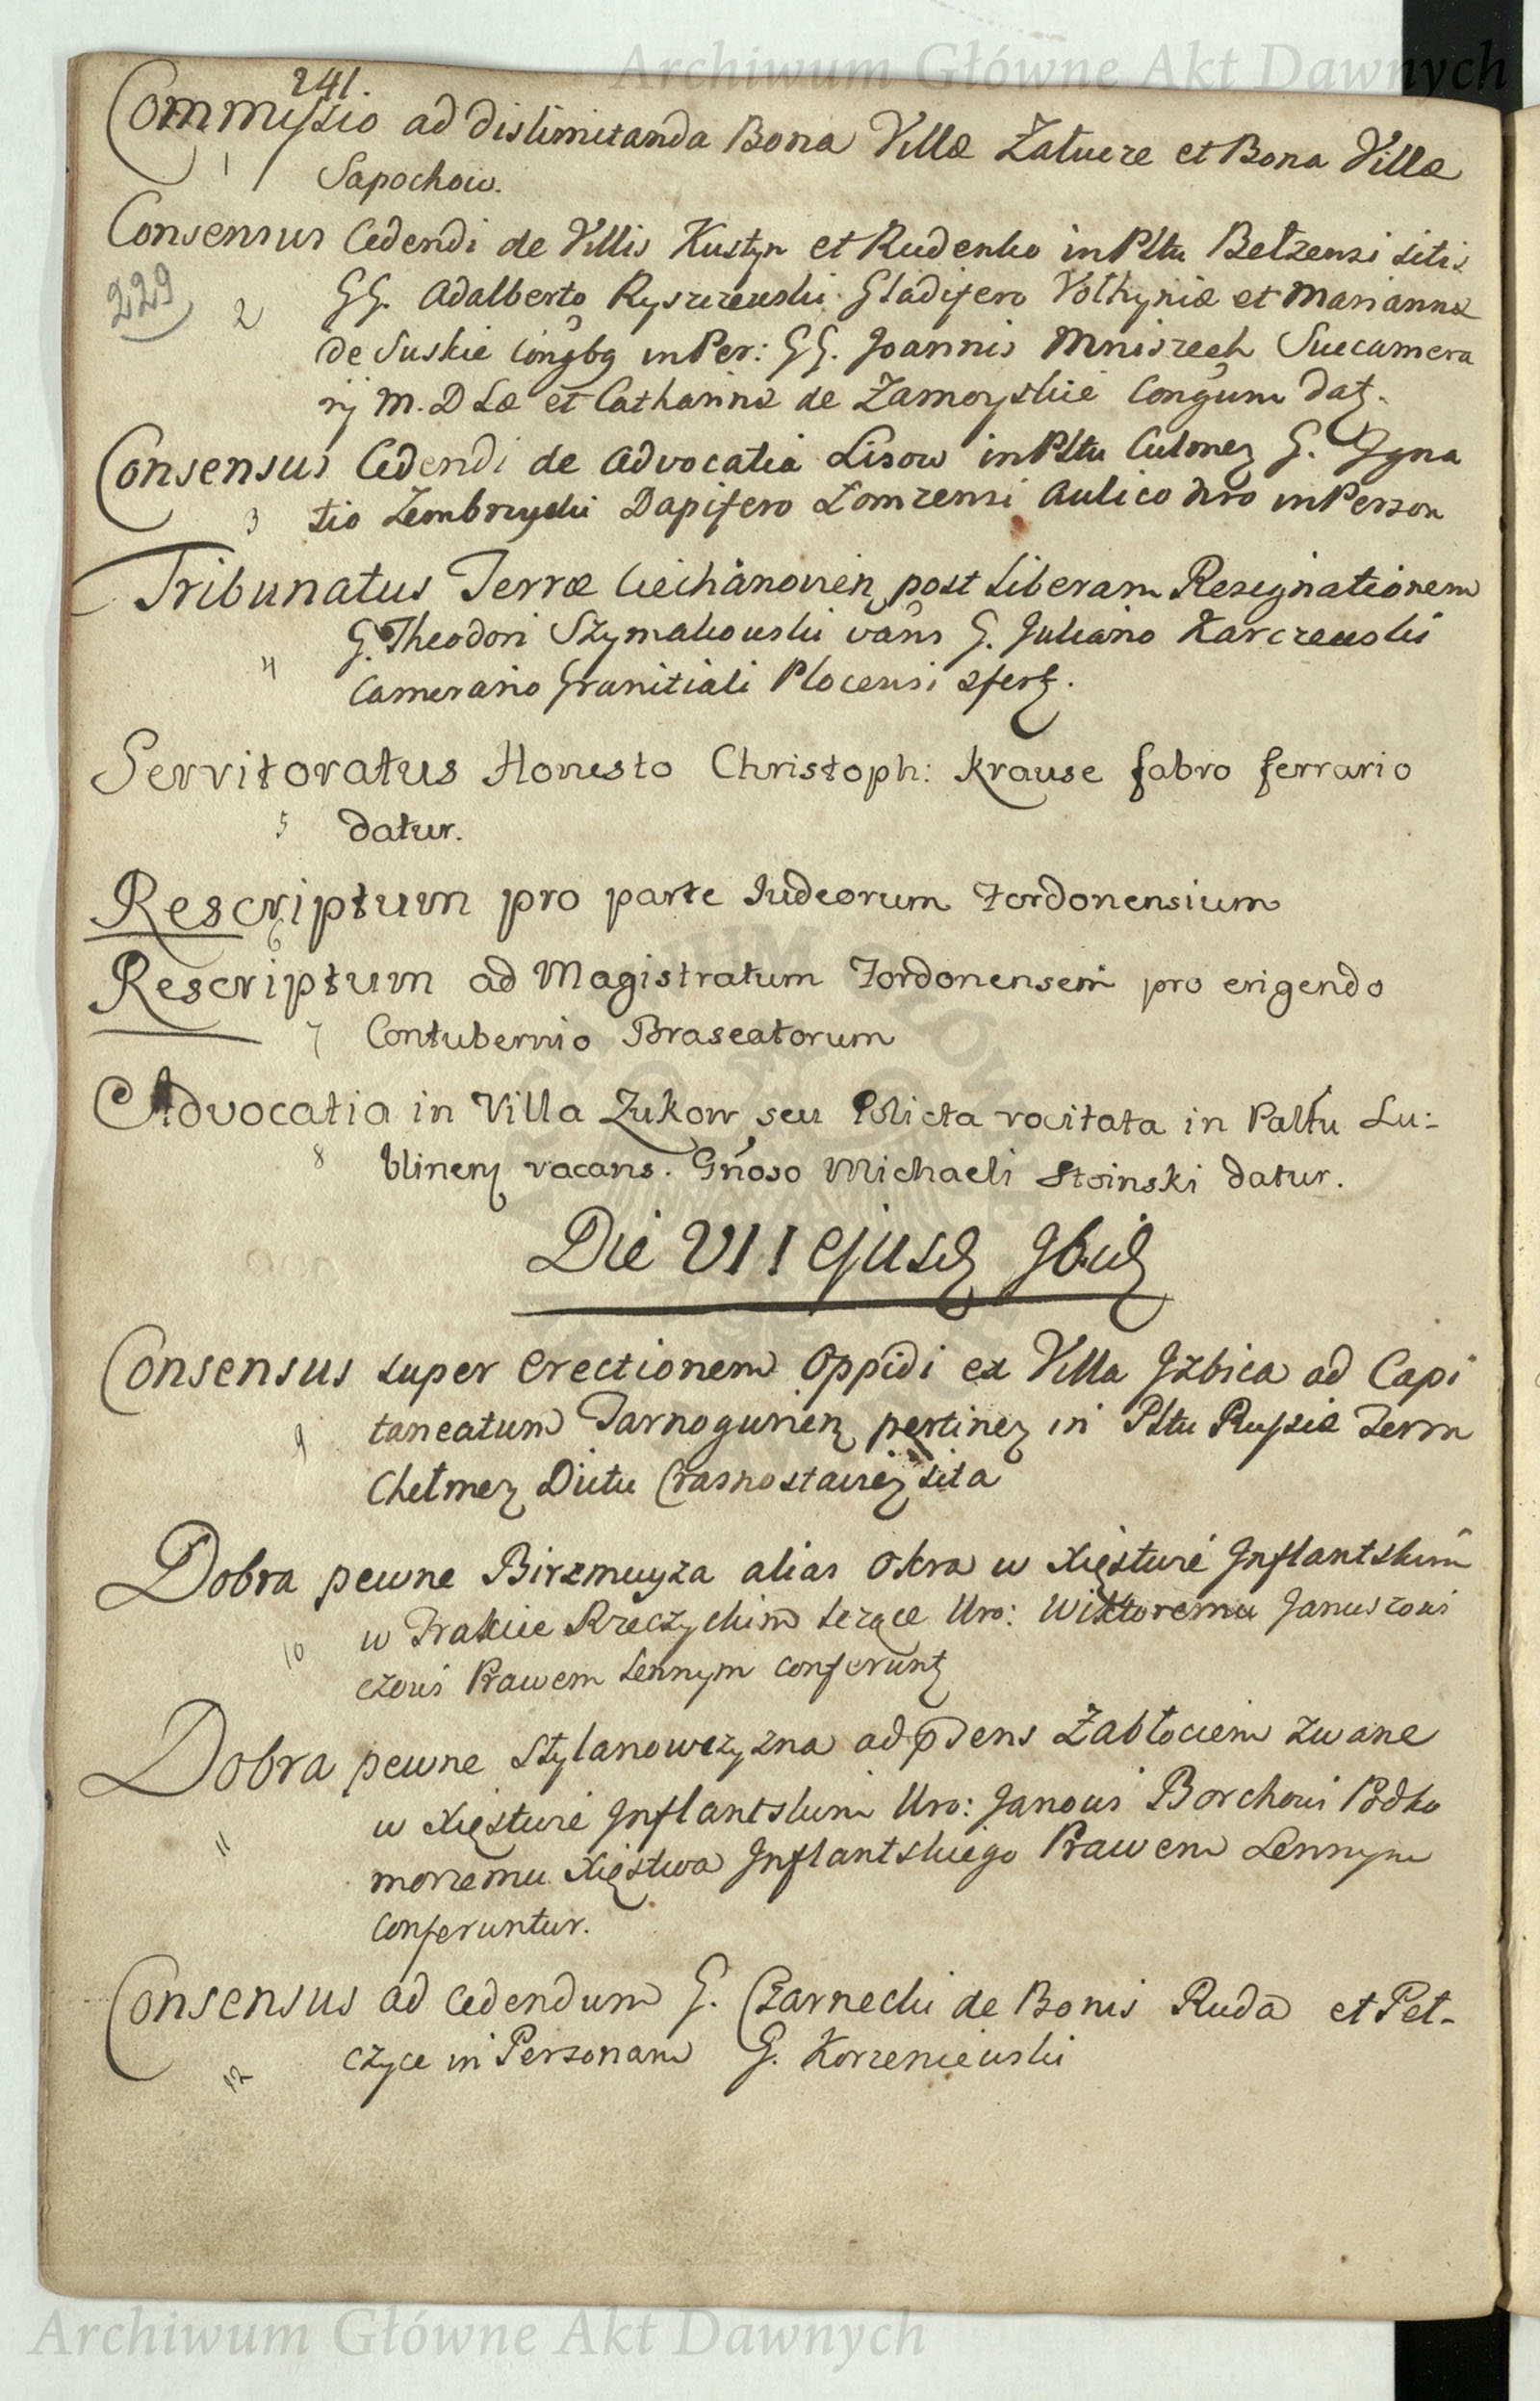 Archiwum Główne Akt Dawnych
241.
Commissio ad dislimitanda Bona Villæ Zatucze et Bona Villæ
1 Sapochow.
Consensus Cedendi de Villis Kustyn et Rudenko in Pltu Bełzensi sitis
229
2 GG. Adalberto Ryszczewski Gladifero Volhyniæ et Mariannæ
de Suskie Conjbq in Per: GG. Joannis Mniszech Succamera
rij M. D Læ et Catharinæ de Zamoyskie Congum datz.
Consensus Cedendi de Advocatia Lisow in Pltu Culmez G. Igna
3 tio Zembrzuski Dapifero Lomzensi Aulico Nro in Person
Tribunatus Terræ Ciechanovien post Liberam Resignationem
G. Theodori Szymakowski vans G. Juliano Karczewski
4 Camerario Granitiali Plocensi sfertz.
Servitoratus Honesto Christoph: Krause fabro ferrario
5 datur.
Rescriptum pro parte Judeorum Fordonensium
6
Rescriptum ad Magistratum Fordonensem pro erigendo
7 Contubernio Braseatorum
Advocatia in Villa Zukow seu Policta vocitata in Paltu Lu:
8 blinen vacans. Gnoso Michaeli Stoinski datur.
Die VII ejusd 9bid
Consensus super Erectionem Oppidi ex Villa Izbica ad Capi
9 taneatum Tarnogurien pertinez in Pltu Russiæ Terra
Chełmez Dictu Crasnostawiez sita
Dobra pewne Birzmuyza alias Okra w Xięstwie Inflantskim
10 w Trakcie Rzeczyckim leżące Uro: Wiktoremu Januszowi
czowi Prawem Lennym conferuntz
Dobra pewne Stylanowczyzna ad pdens Zabłociem zwane
11 w Xięstwie Inflantskim Uro: Janowi Borchowi Podko
morzemu Xięstwa Inflantskiego Prawem Lennym
conferuntur.
Consensus ad cedendum G. Czarnecki de Bonis Ruda et Pet-
12 czyce in Personam G. Korzeniewski
Archiwum Główne Akt Dawnych